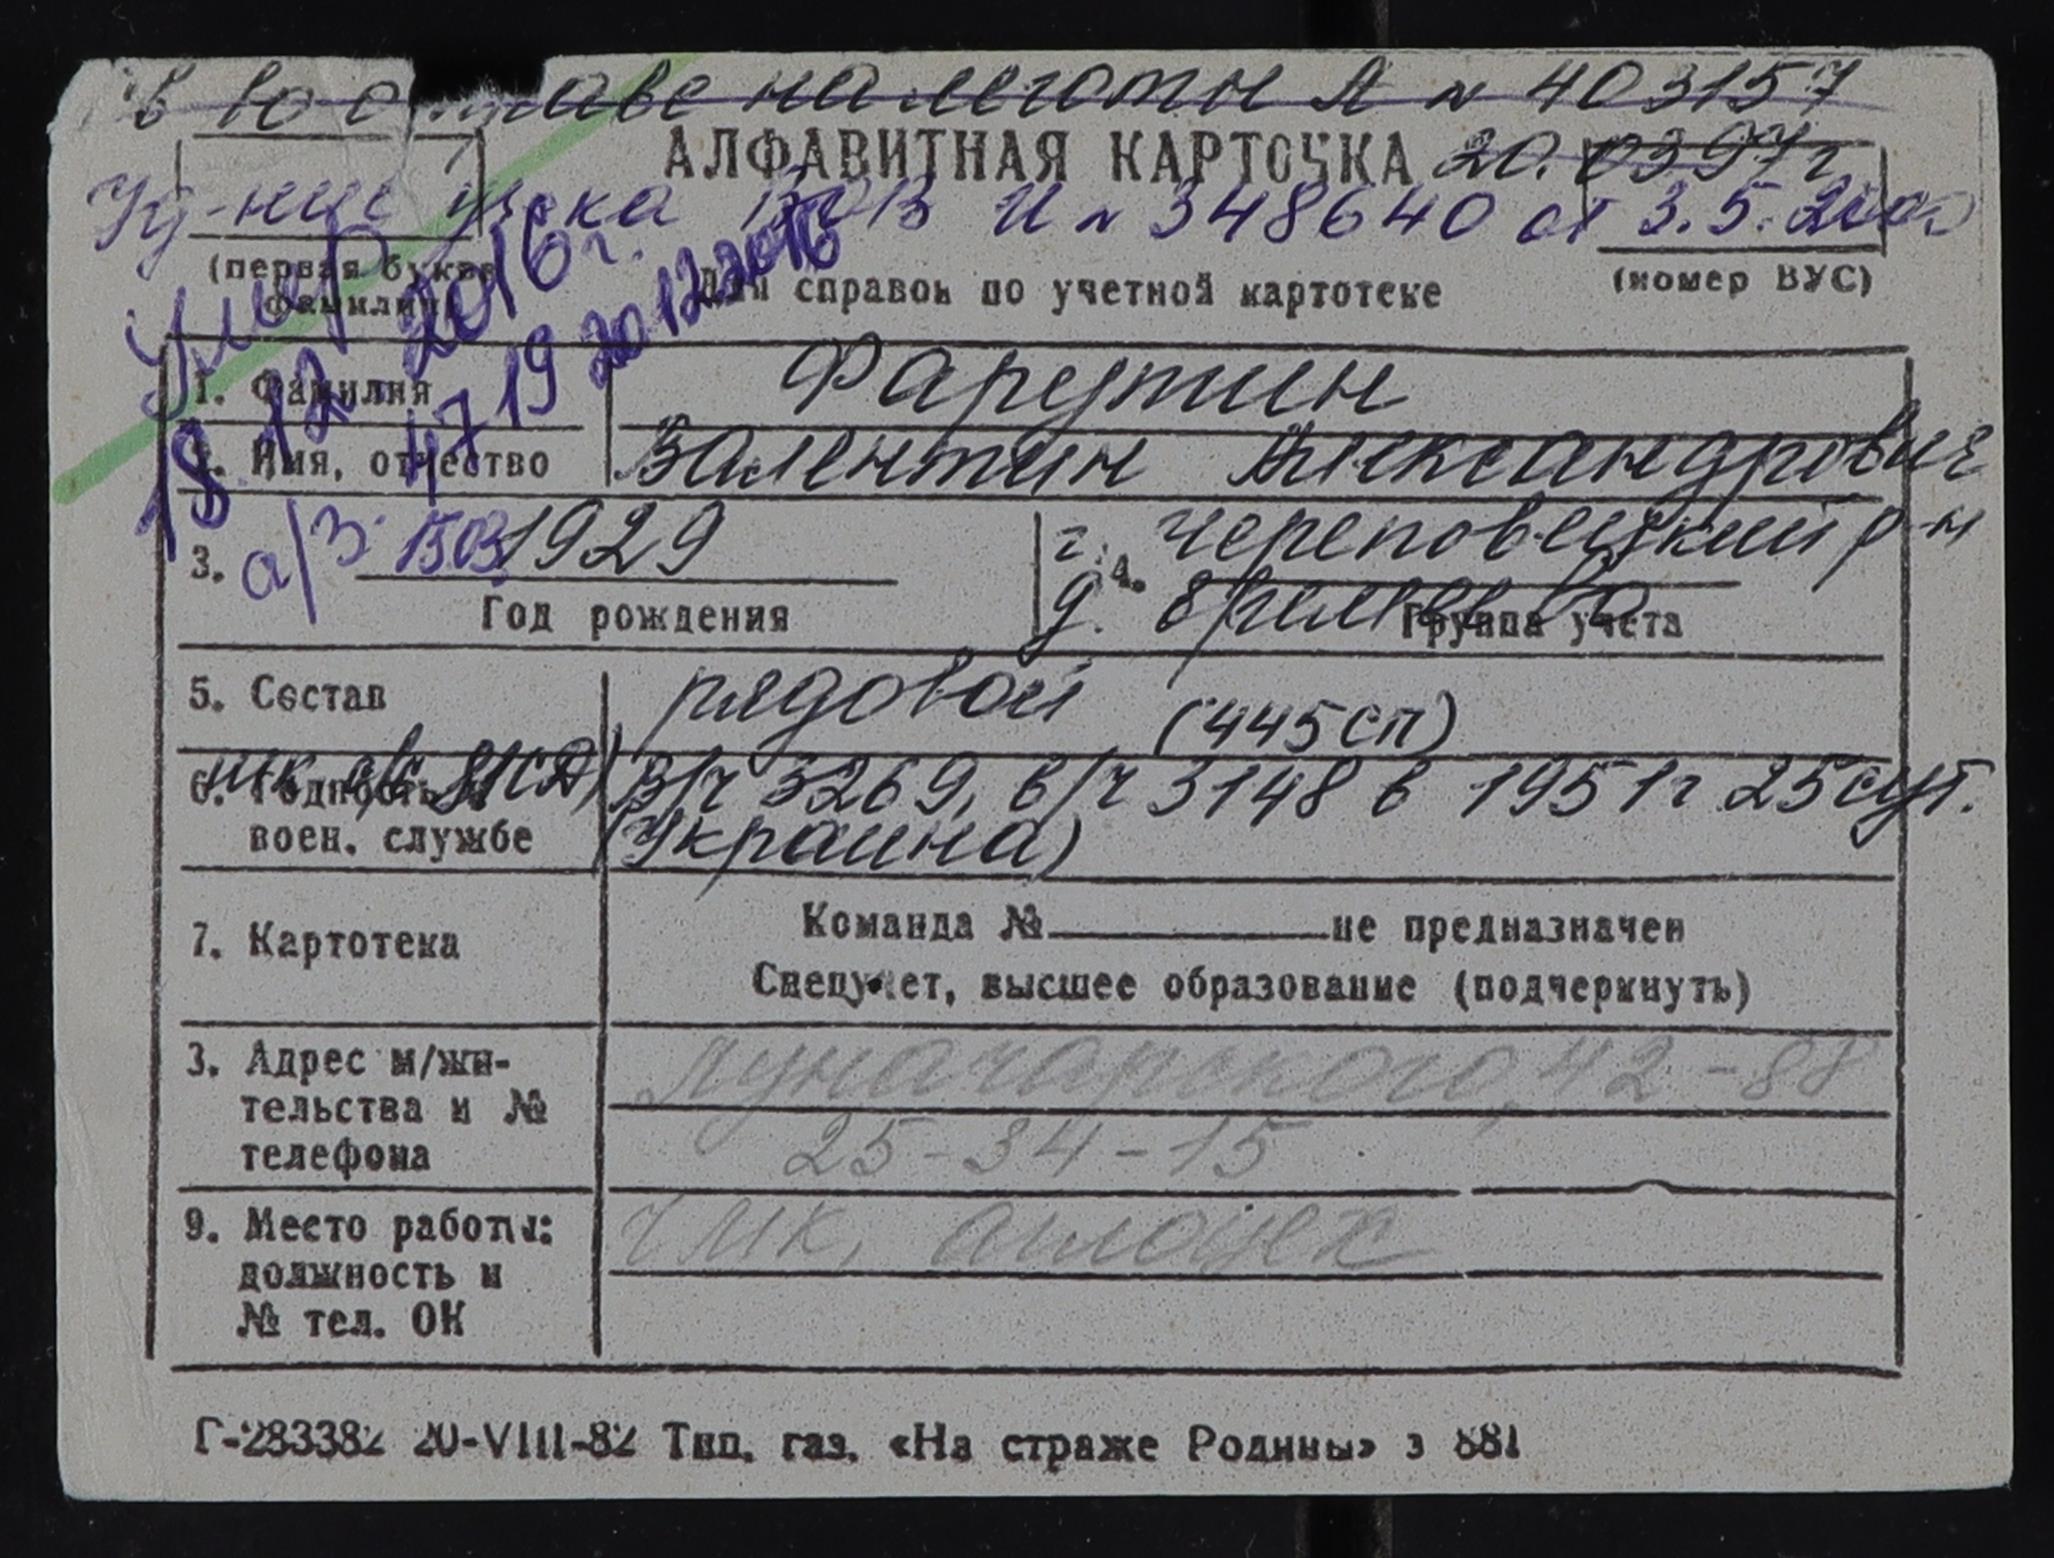 в во о праве на льготы А № 403157
АЛФАВИТНАЯ КАРТОЧКА 20.03 97г
Уд-ние уч-ка ВОВ И № 348640 от 3.5.2000
(первая буква фамилии)
Для справок по учетной картотеке
(номер ВУС)
Умер 18.12 2016г.
4719 20.12.2016
1. Фамилия Фарутин
2. Имя, отчество Валентин Александрович
3. а/з 15.03. 1929
Год рождения
4. г. Череповецкий р-н
д.
Группа учета
5. Состав рядовой (445сп)
6. Годность к воен. службе
в/ч 3269, в/ч 3148 в 1951г 25 сут.
(Украина)
7. Картотека
Команда № не предназначен
Спецучет, высшее образование (подчеркнуть)
3. Адрес м/жи-
тельства и №
телефона
Луначарского, 42-88
25-34-15
9. Место работы:
должность и
№ тел. ОК
ЧМК,
Г-283382 20-VIII-82 Тип. газ. «На страже Родины» з 881